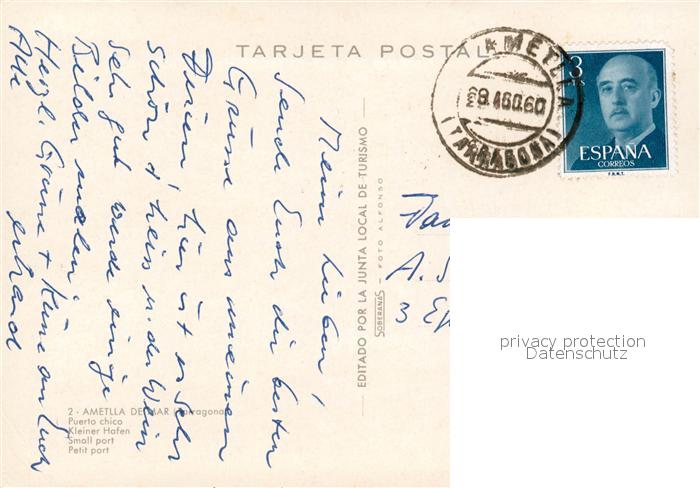 TARJETA POSTAL
AMETLLA
28 AGO. 60
(TARRAGONA)
3
PTS
ESPAÑA
CORREOS
F.N.M.T.
Meine Lieben!
Sende Euch die besten
Grüsse aus meinen
Ferien, hier ist es sehr
schön & heiss u. der Wein
sehr gut werde einige
Bilder malen.
Herzl. Grüsse & Küsse an Euch
Alle
EDITADO POR LA JUNTA LOCAL DE TURISMO
SOBERANAS — FOTO ALFONSO
Fam
A. S
3 Ep
privacy protection
Datenschutz
2 - AMETLLA DE MAR (Tarragona)
Puerto chico
Kleiner Hafen
Small port
Petit port